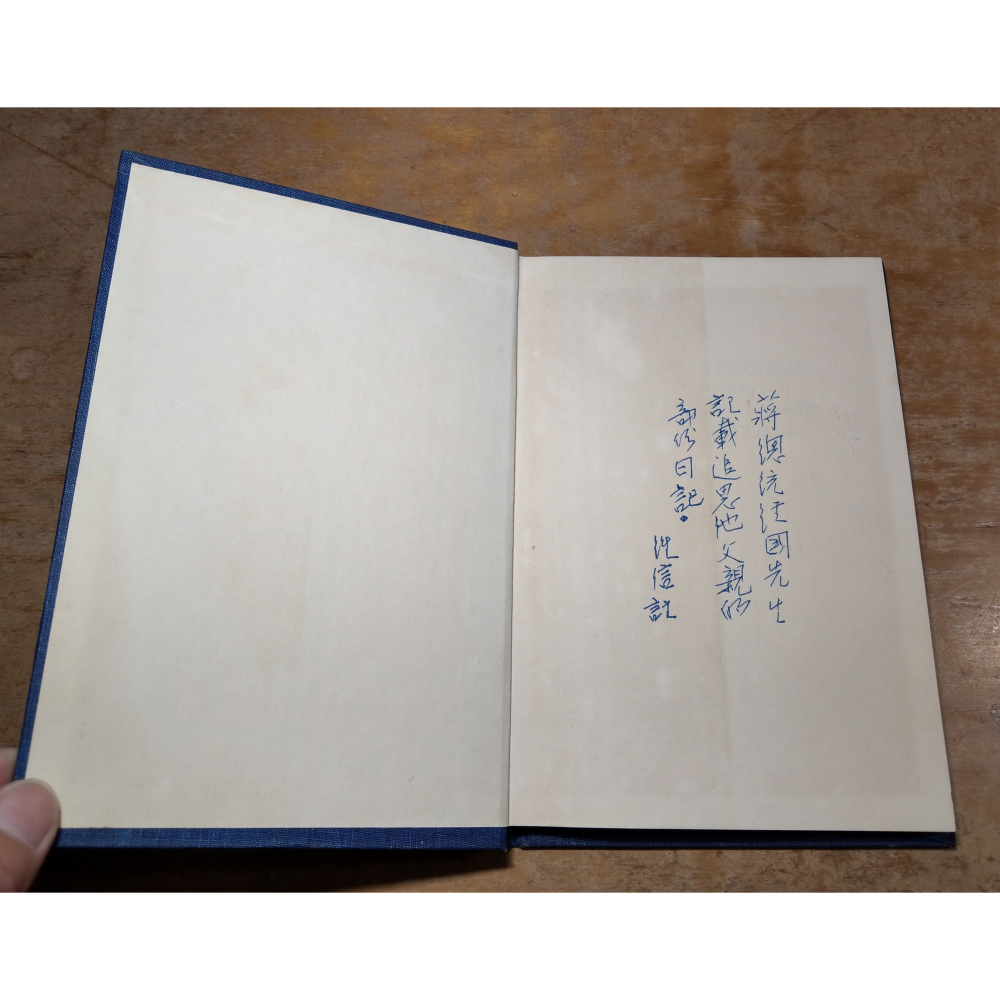 蔣總統經國先生
記載追思他父親的
部份日記。
維信註